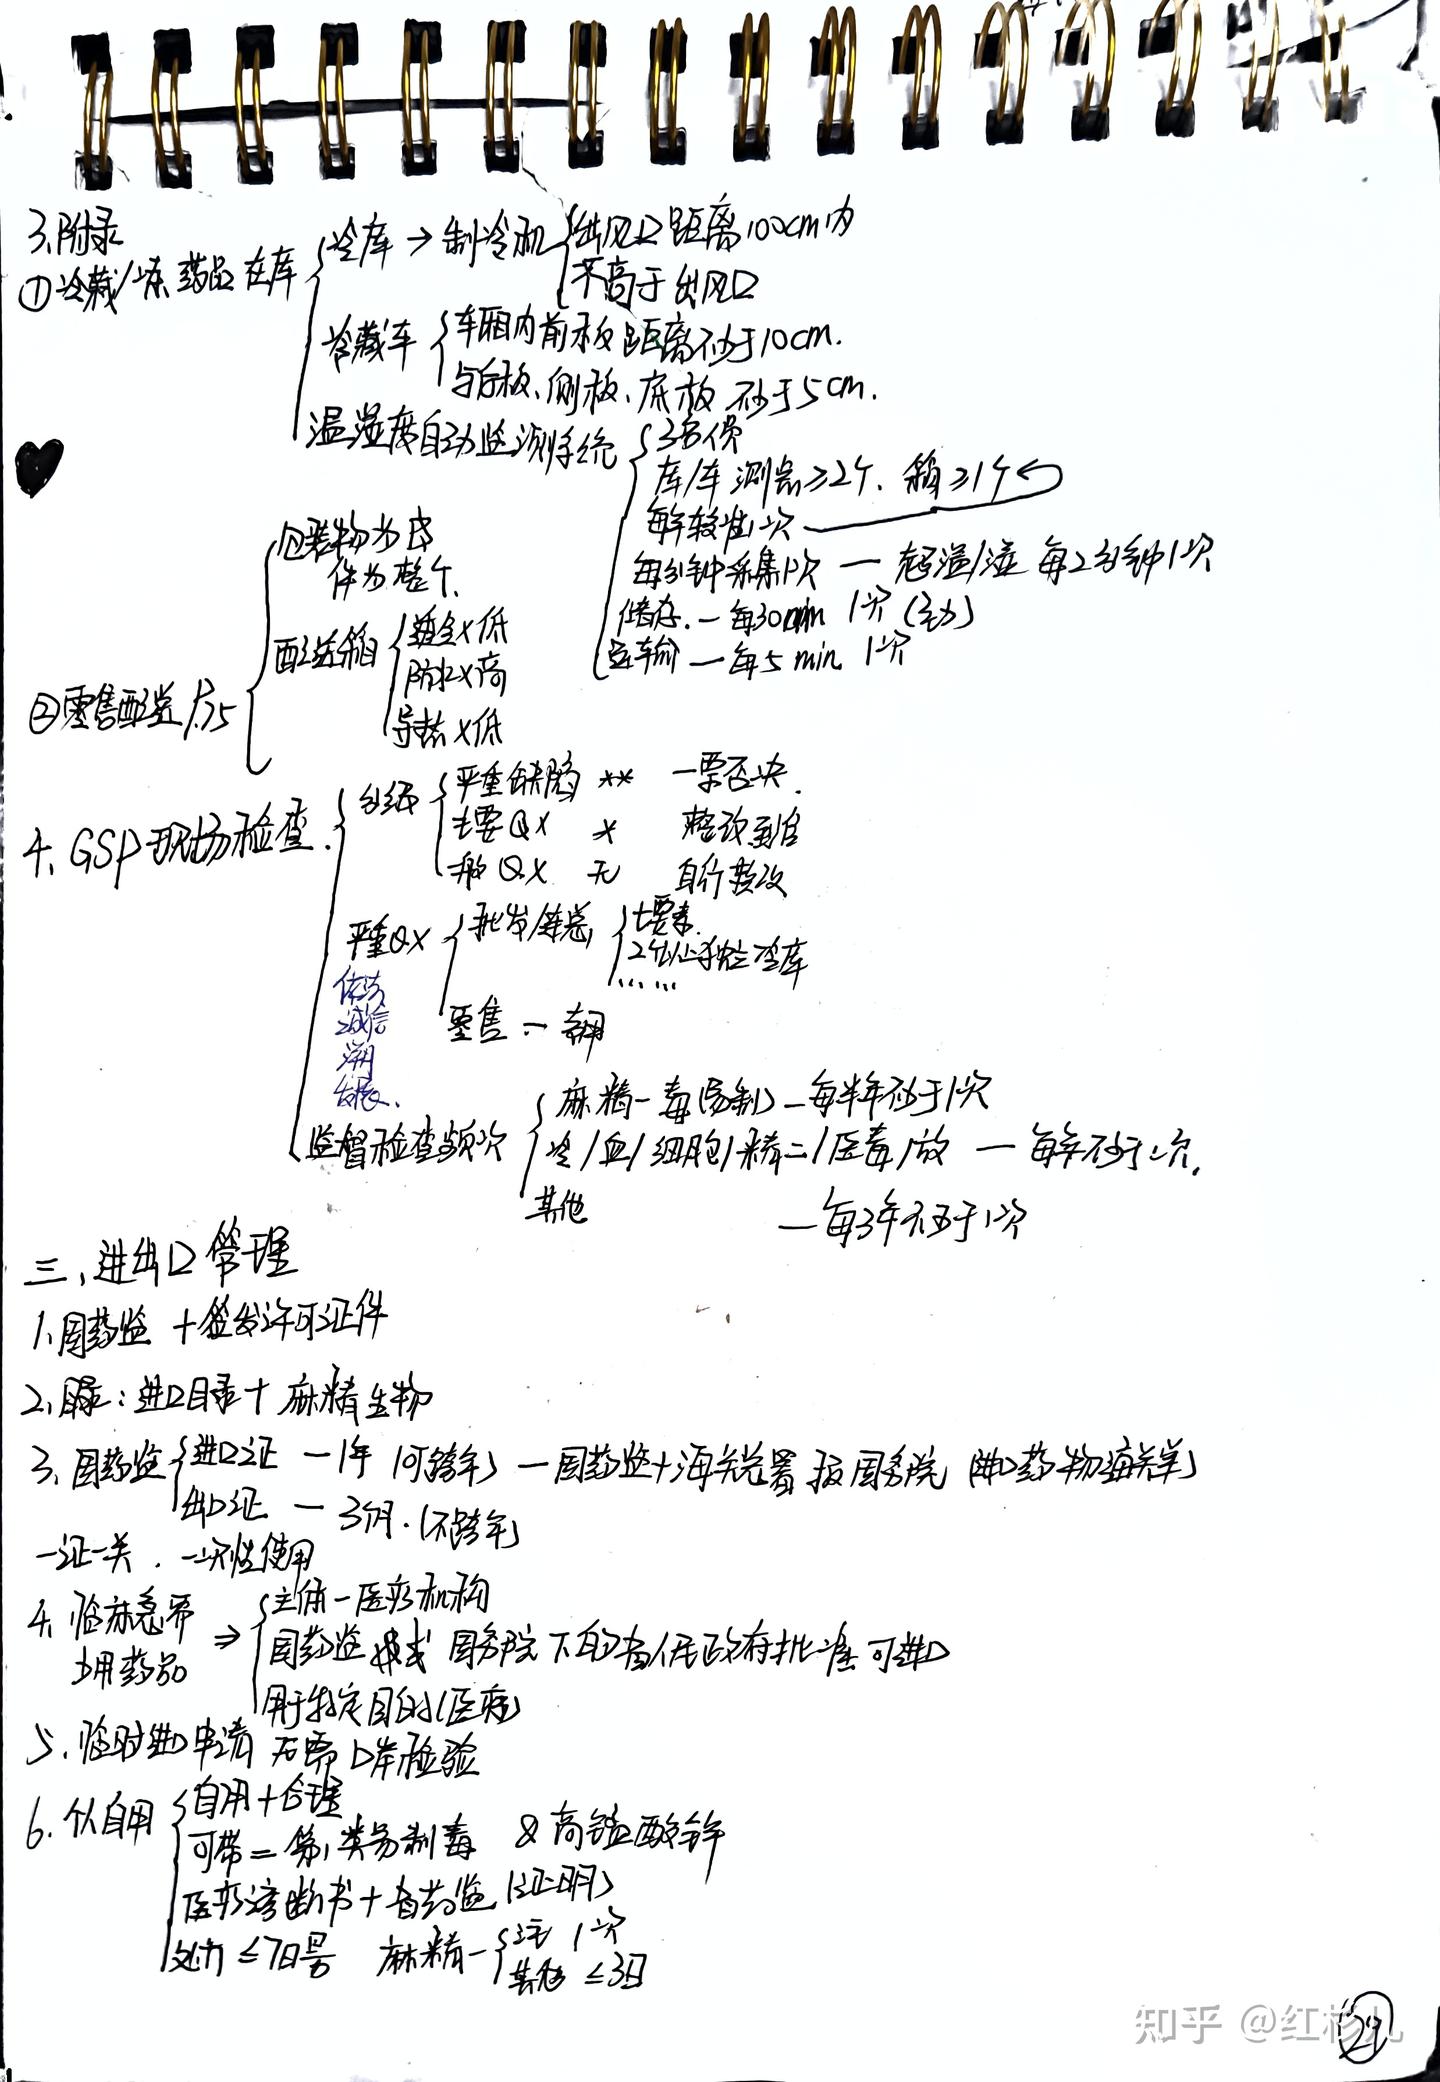 3.附录
①冷藏/冻药品在库
冷库→制冷机
出风口距离100cm内
不高于出风口
冷藏车
车厢内前板距离不少于10cm.
与后板、侧板、底板不少于5cm.
温湿度自动监测系统
库/车 测点≥2个、箱≥1个
每年校准1次
每分钟采集1次 — 超温/湿 每2分钟1次
储存.—每30min 1次(主动)
运输—每5min 1次
②零售配送
包装物为
件为整个.
配送箱
防水×高
导热×低
4. GSP现场检查.
分级
严重缺陷 ** 一票否决.
主要QX * 整改到位
一般QX 无 自行整改
严重QX
批发/连总
2个以上独立冷库
......
零售 —
依法
诚信
溯
监督检查频次
麻精一毒(易制)—每半年不少于1次
冷/血/细胞/精二/医毒/放 — 每年不少于1次.
其他 —每3年不少于1次
三、进出口管理
1.国药监+签发许可证件
2.目录:进口目录+麻精生物
3.国药监
进口证—1年(可跨年)—国药监+海关总署报国务院(进口药物海关单)
出口证—3个月.(不跨年)
一证一关.一次性使用
4.临床急需
少用药品 ⇒
主体—医疗机构
国药监或国务院下的省人民政府批准可进口
用于特定目的(医疗)
5.临时进口申请 无需口岸检验
6.个人自用
自用+合理
可带=第1类易制毒 & 高锰酸钾
医疗诊断书+省药监(证明)
处方≤7日量 麻精一
注 1次
其他≤3日
29
知乎 @红杉儿